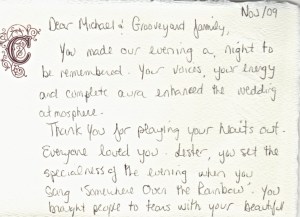 Nov/09
Dear Michael & Grooveyard family,
You made our evening a night to
be remembered. Your voices, your energy
and complete aura enhanced the wedding
atmosphere.
Thank You for playing your hearts out.
Everyone loved you. Lester, you set the
specialness of the evening when you
sang 'Somewhere Over the Rainbow'. You
brought people to tears with your beautiful